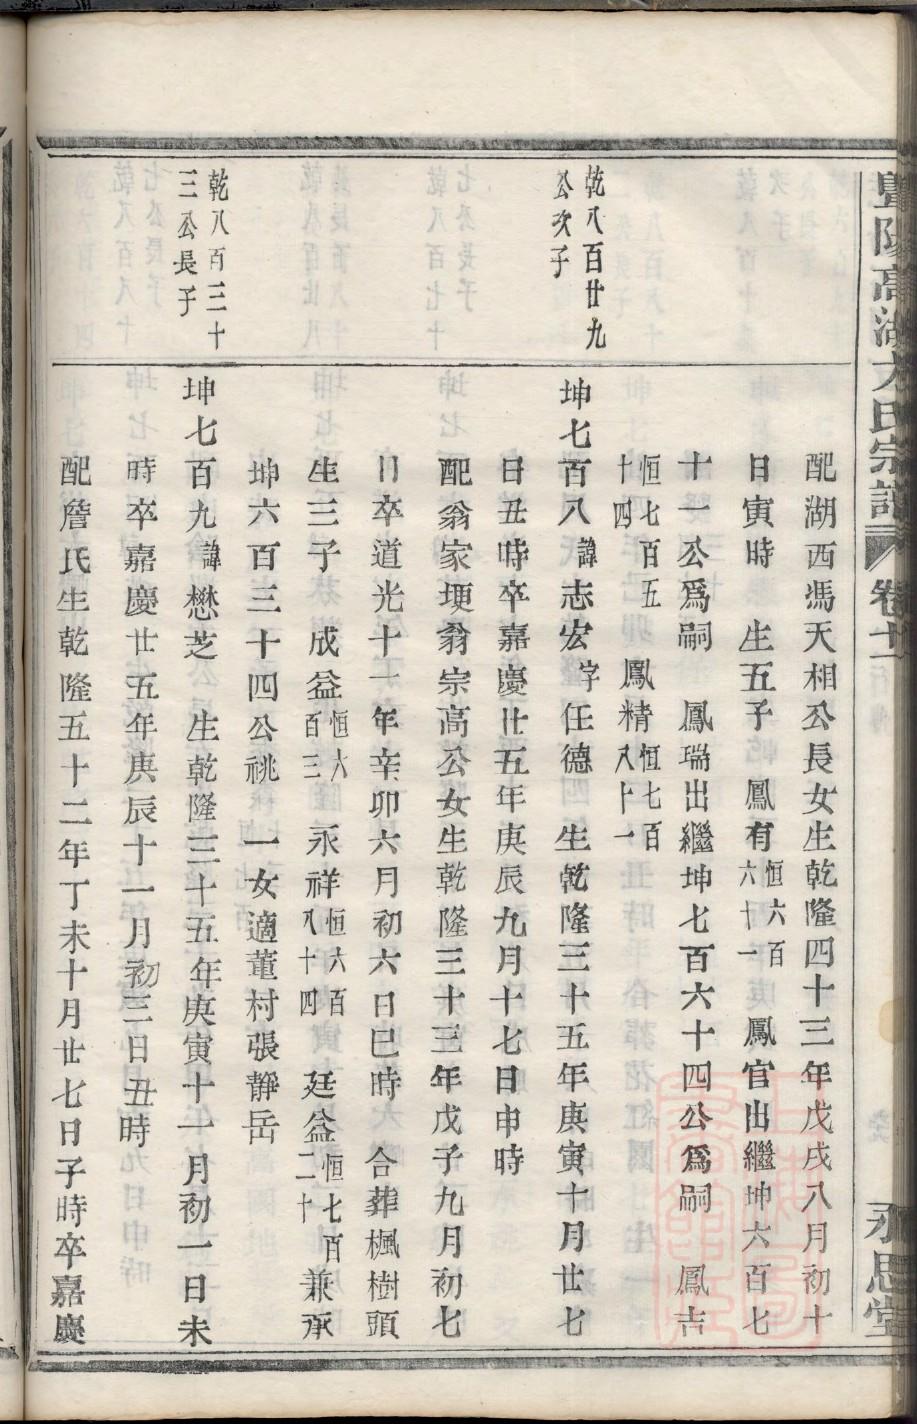 高湖方氏宗譜 卷十一 永思堂
配湖西馮天相公長女生乾隆四十三年戊戌八月初十
日寅時 生五子 鳳有恒六百六十一 鳳官出繼坤六百七
十一公爲嗣 鳳瑞出繼坤七百六十四公爲嗣 鳳吉
恒七百五十四 鳳精恒七百八十一
乾八百廿九公次子
坤七百八諱志宏字任德 生乾隆三十五年庚寅十月廿七
日丑時卒嘉慶廿五年庚辰九月十七日申時
配翁家埂翁宗高公女生乾隆三十三年戊子九月初七
日卒道光十一年辛卯六月初六日巳時 合葬楓樹頭
生三子 成益恒六百三 永祥恒六百八十四 廷益恒七百二十 兼承
坤六百三十四公祧 一女適董村張靜岳
乾八百三十三公長子
坤七百九諱懋芝 生乾隆三十五年庚寅十一月初一日未
時卒嘉慶廿五年庚辰十一月初三日丑時
配詹氏生乾隆五十二年丁未十月廿七日子時卒嘉慶